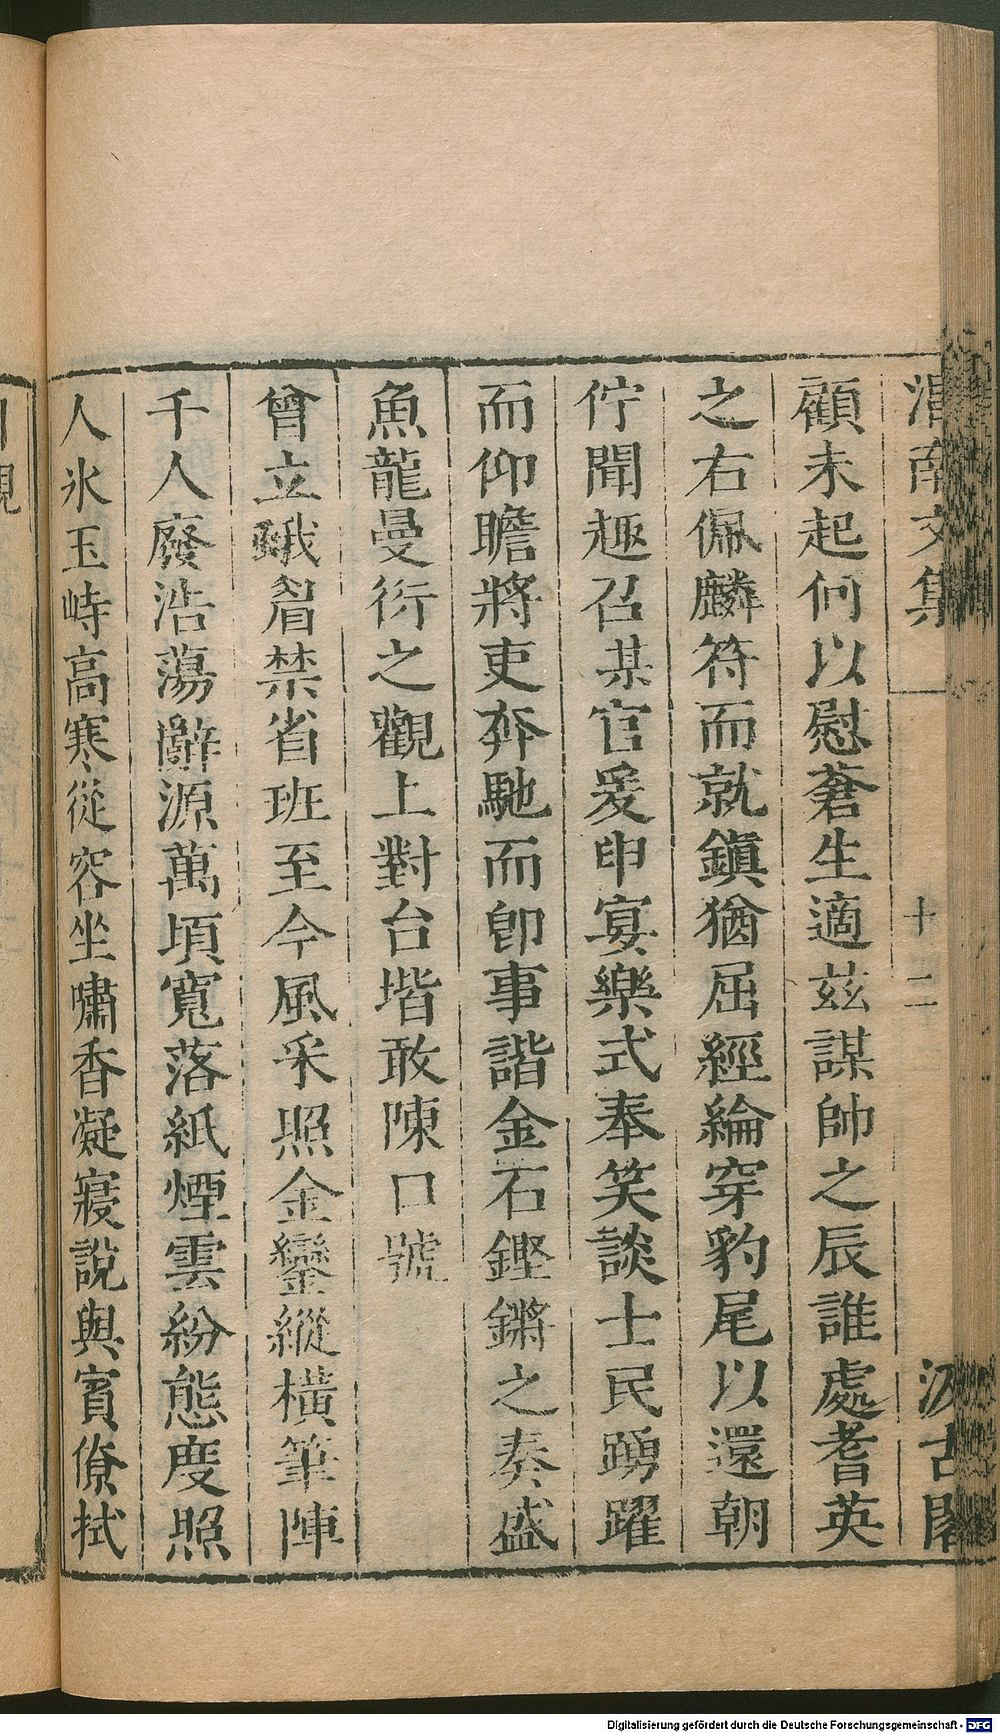 渭南文集 十二 汲古閣
顧未起何以慰蒼生適茲謀帥之辰誰處耆英
之右佩麟符而就鎮猶屈經綸穿豹尾以還朝
佇聞趣召某官爰申宴樂式奉笑談士民踴躍
而仰瞻將吏奔馳而卽事諧金石鏗鏘之奏盛
魚龍曼衍之觀上對台堦敢陳口號
曾立蛾眉禁省班至今風采照金鑾縱橫筆陣
千人廢浩蕩辭源萬頃寬落紙煙雲紛態度照
人氷玉峙高寒從容坐嘯香凝寢說與賓僚拭
目觀
Digitalisierung gefördert durch die Deutsche Forschungsgemeinschaft - DFG